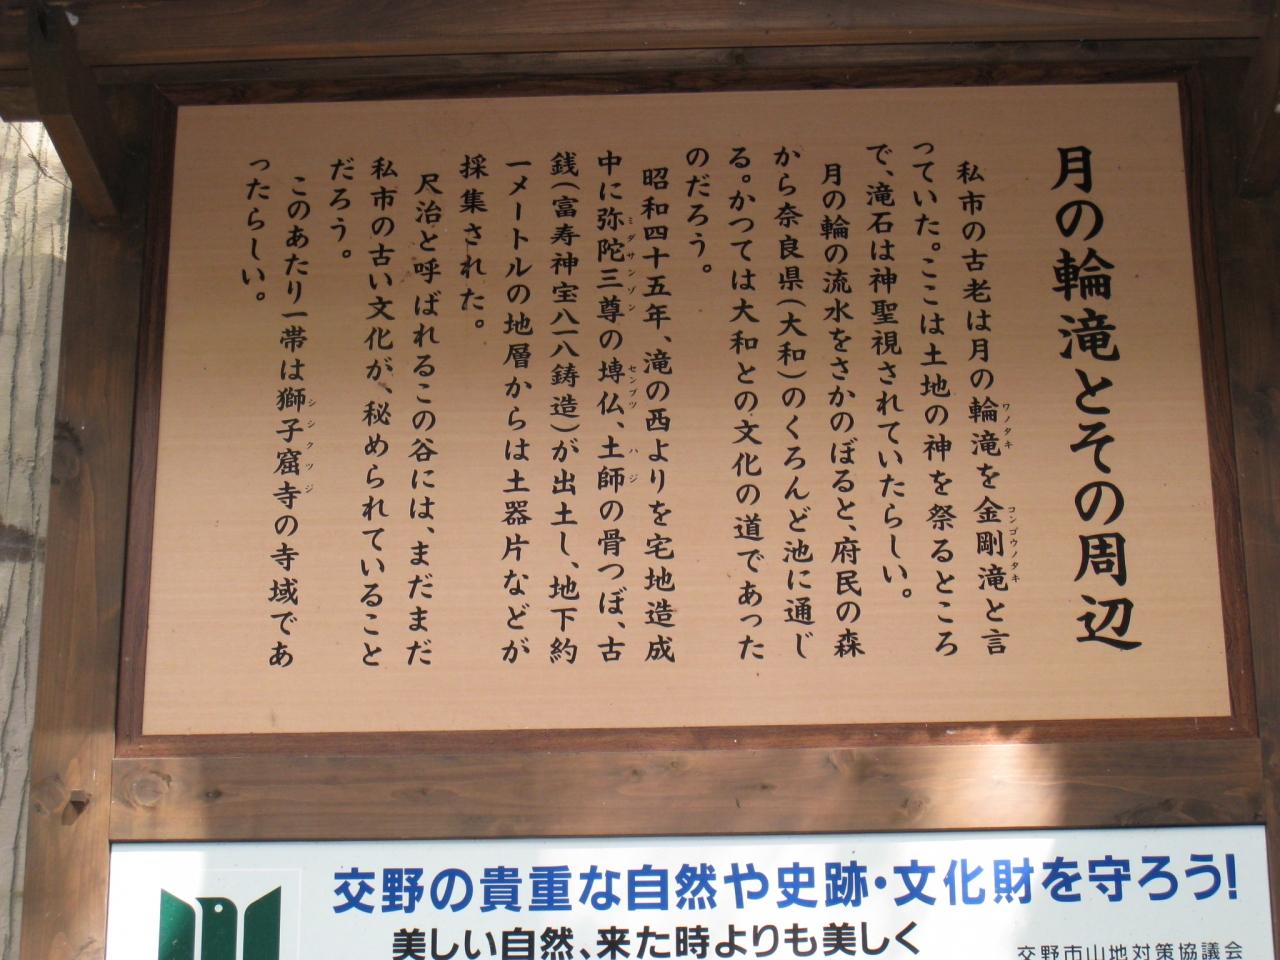 月の輪滝とその周辺
私市の古老は月の輪滝を金剛滝と言
ワノタキ
コンゴウノタキ
っていた。ここは土地の神を祭るところ
で、滝石は神聖視されていたらしい。
月の輪の流水をさかのぼると、府民の森
から奈良県(大和)のくろんど池に通じ
る。かつては大和との文化の道であった
のだろう。
昭和四十五年、滝の西よりを宅地造成
中に弥陀三尊の塼仏、土師の骨つぼ、古
ミダサンゾン
センブツ
ハジ
銭(富寿神宝八一八鋳造)が出土し、地下約
一メートルの地層からは土器片などが
採集された。
尺治と呼ばれるこの谷には、まだまだ
私市の古い文化が、秘められていること
だろう。
このあたり一帯は獅子窟寺の寺域であ
シシクツジ
ったらしい。
交野の貴重な自然や史跡・文化財を守ろう!
美しい自然、来た時よりも美しく
交野市山地対策協議会